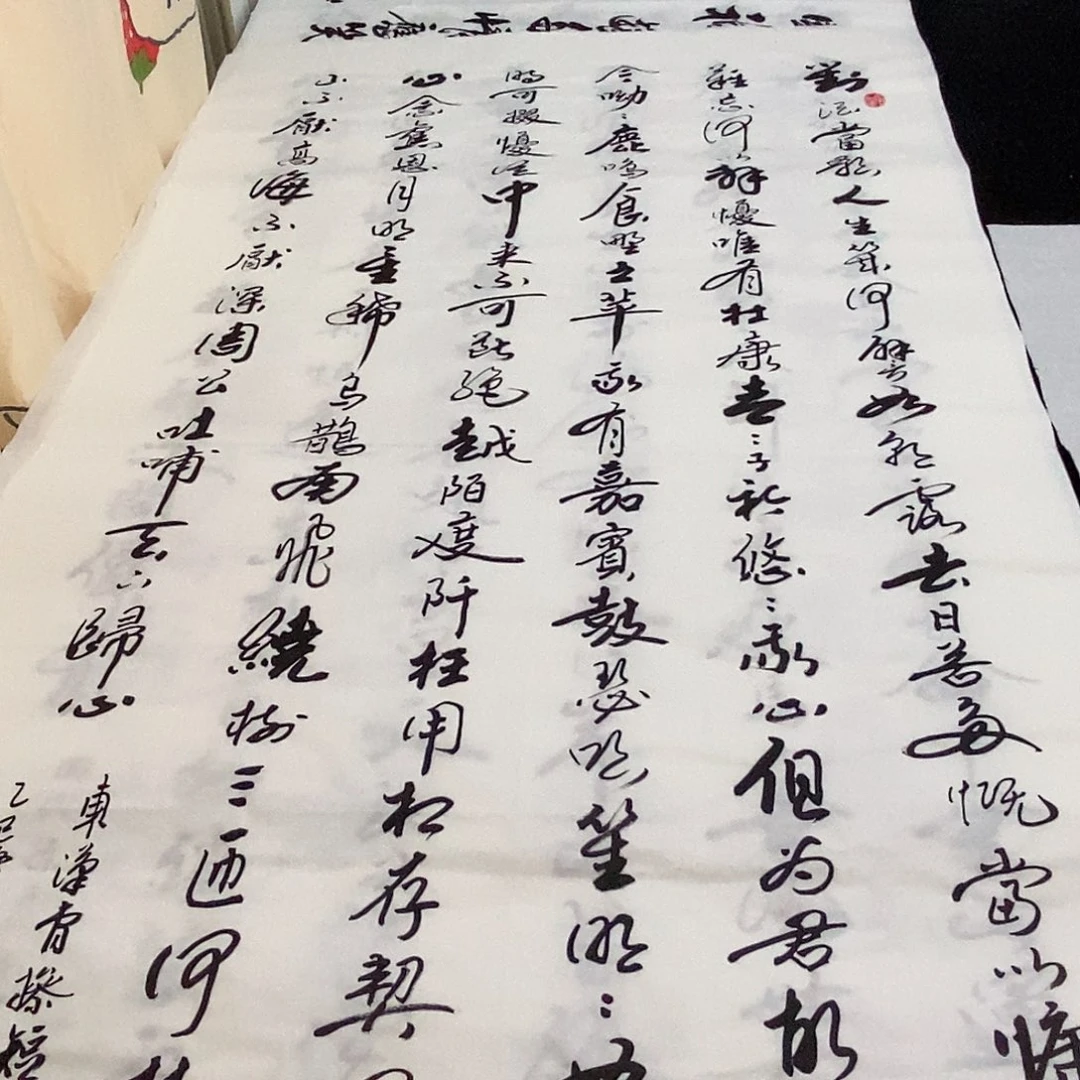 對酒當歌人生幾何譬如朝露去日苦多慨當以慷
難忘何解懮唯有杜康青〻子衿悠〻我心但為君故
今呦〻鹿鳴食野之苹我有嘉賓鼓瑟吹笙明〻如
時可掇懮從中来不可斷絕越陌度阡枉用相存契
心念舊恩月明星稀烏鵲南飛繞樹三匝何枝
山不厭高海不厭深周公吐哺天下歸心
東漢曹操短
乙巳